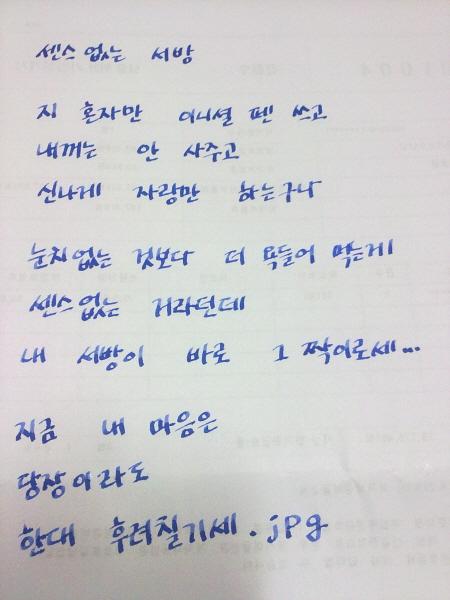 센스 없는 서방
지 혼자만 이니셜 펜 쓰고
내꺼는 안 사주고
신나게 자랑만 하는구나
눈치없는 것보다 더 욕들어 먹는게
센스없는 거라던데
내 서방이 바로 그 짝이로세...
지금 내 마음은
당장이라도
한대 후려칠기세.jpg